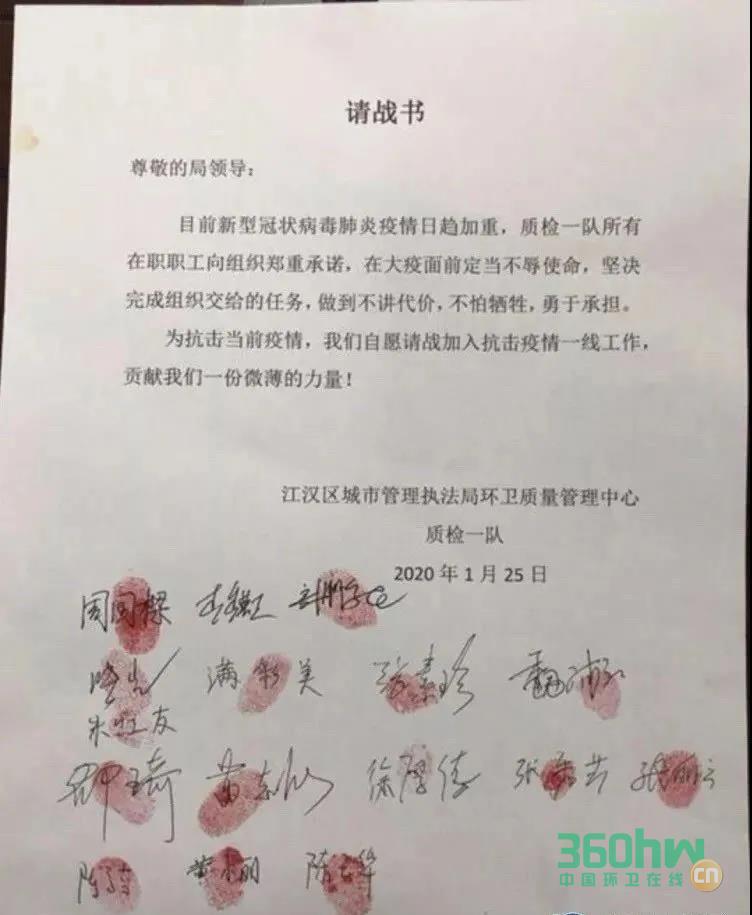 请战书
尊敬的局领导：
目前新型冠状病毒肺炎疫情日趋加重，质检一队所有
在职职工向组织郑重承诺，在大疫面前定当不辱使命，坚决
完成组织交给的任务，做到不讲代价，不怕牺牲，勇于承担。
为抗击当前疫情，我们自愿请战加入抗击疫情一线工作，
贡献我们一份微薄的力量！
江汉区城市管理执法局环卫质量管理中心
质检一队
2020年1月25日
周国樑
满彩美 张素珍
徐厚德
360hw
中国环卫在线 CN